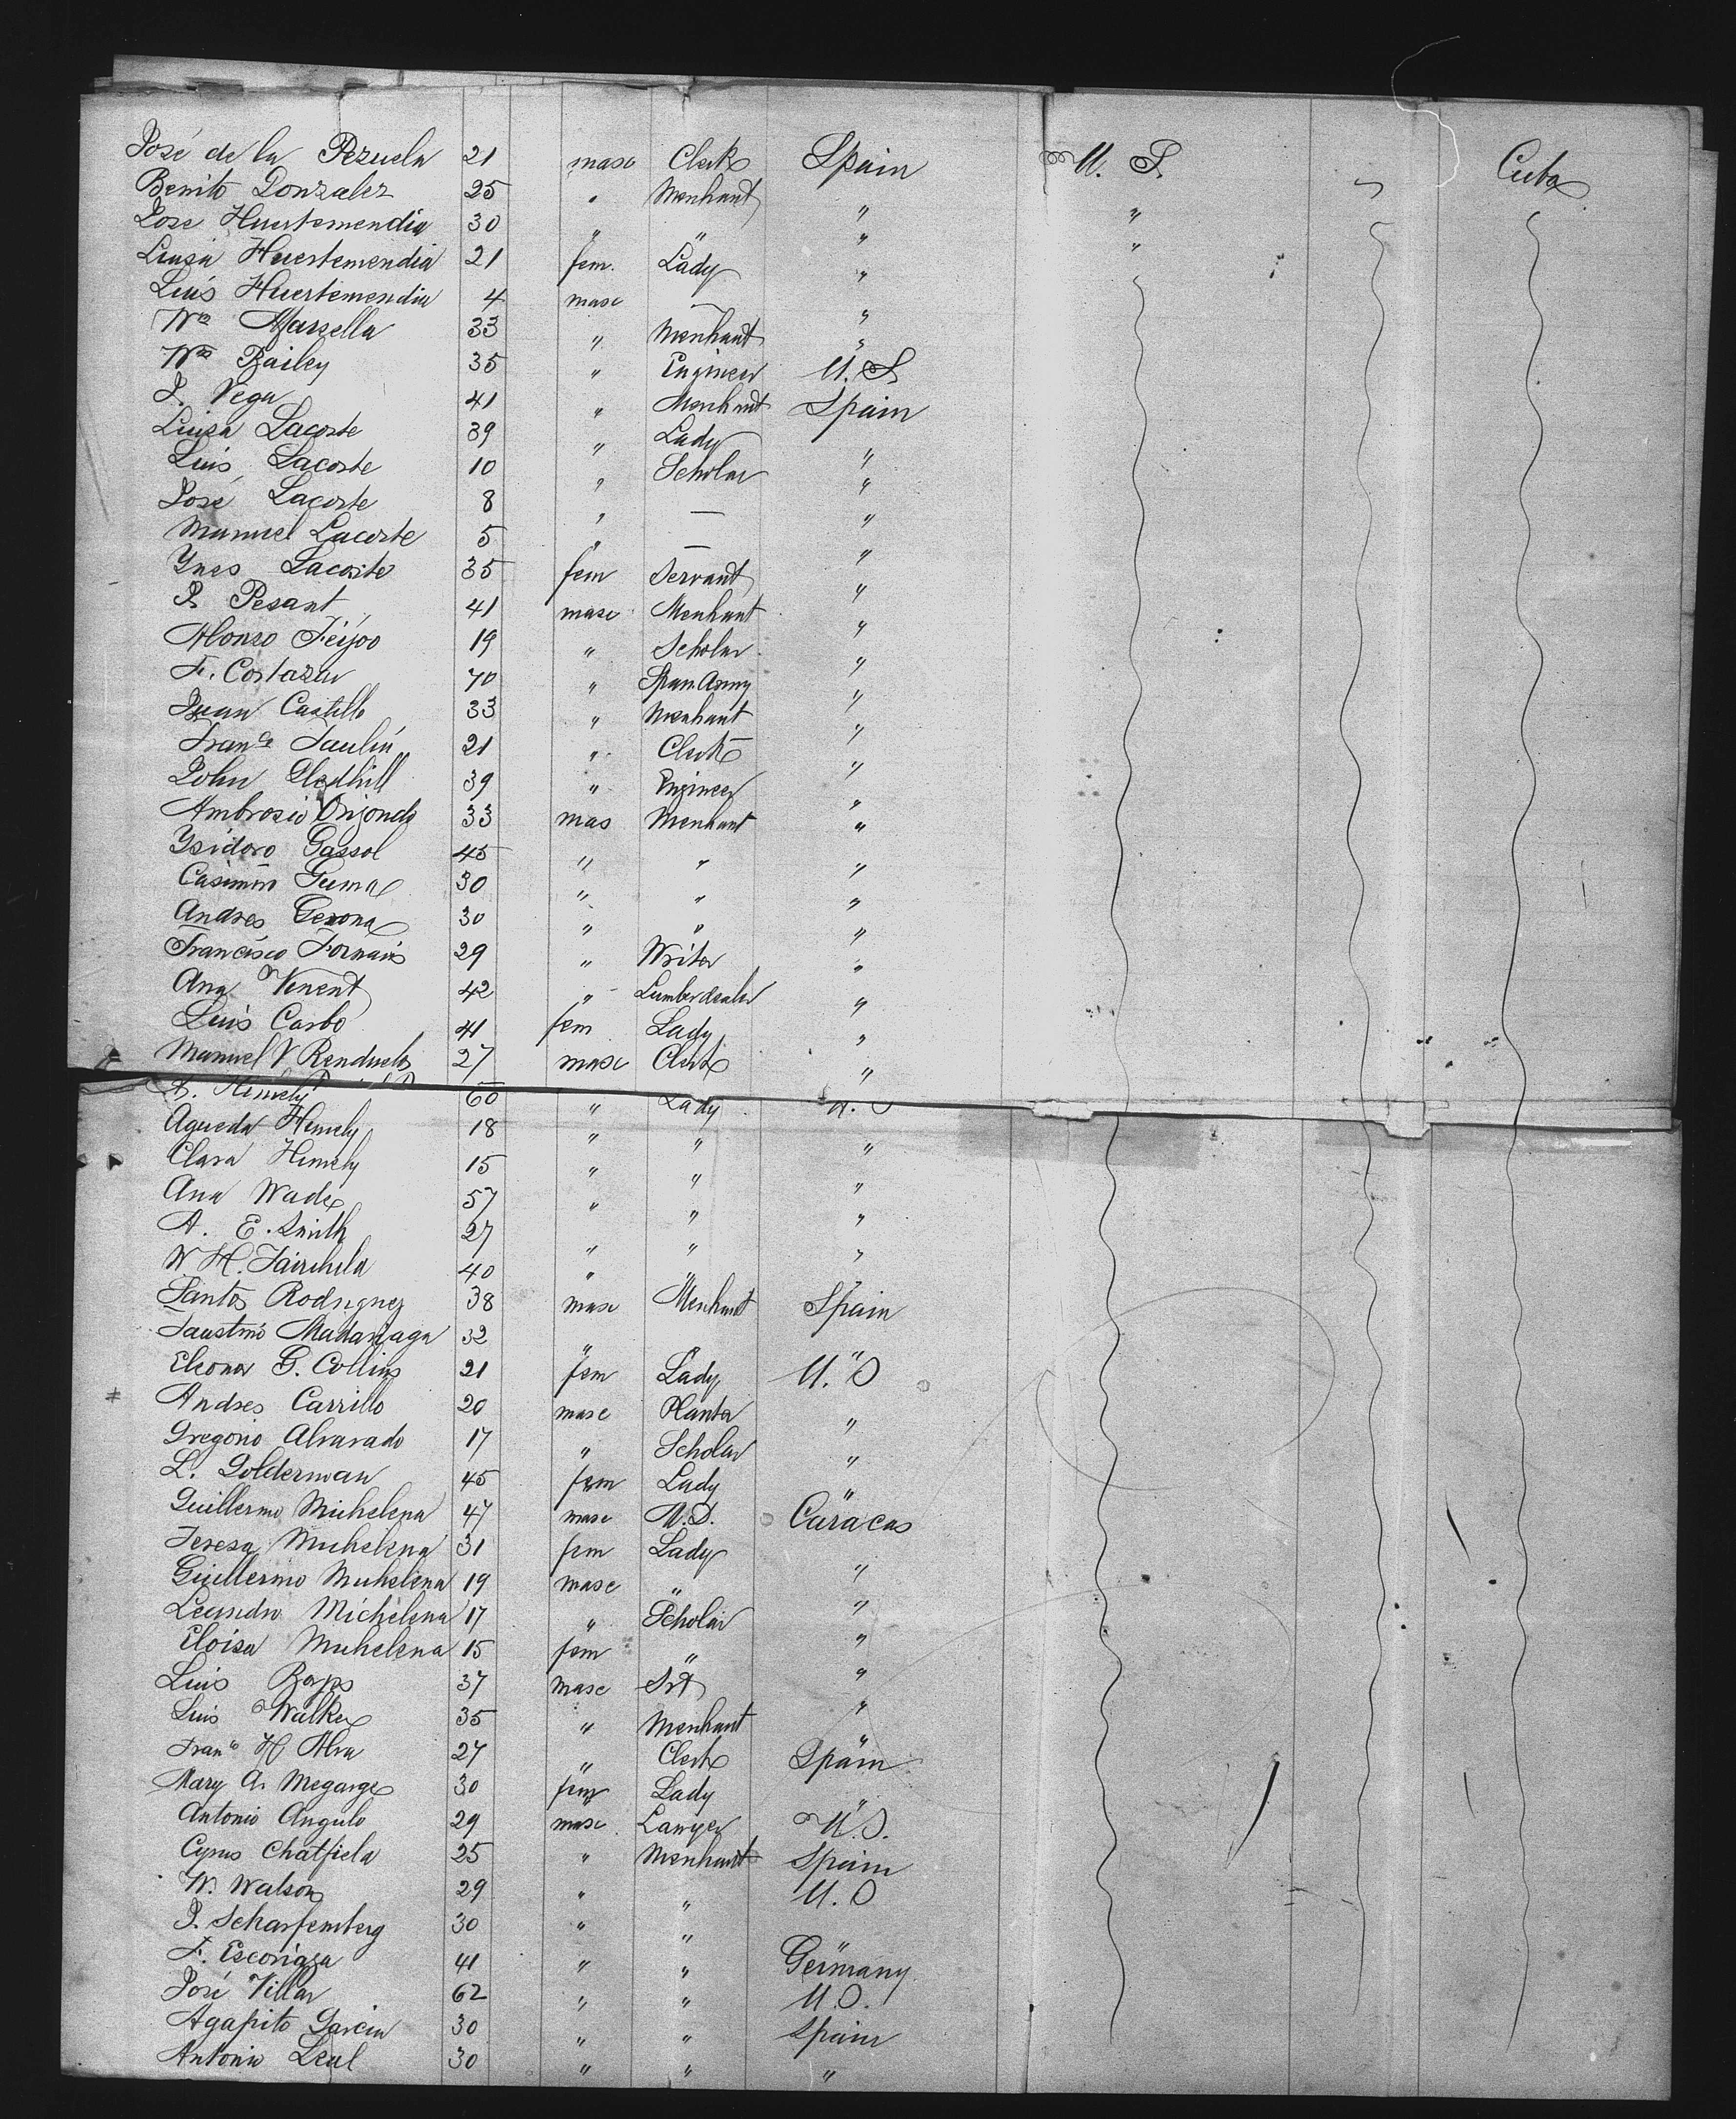 José de la Pezuela 21 masc Clerk Spain U. S. Cuba
Benito Gonzalez 25 " Merchant " "
Jose Huertemendia 30 " " " "
Luisa Huertemendia 21 fem. Lady "
Luis Huertemendia 4 masc — "
Wm Marsella 33 " Merchant "
Wm Bailey 35 " Engineer U. S
J. Vega 41 " Merchant Spain
Luisa Lacoste 39 " Lady "
Luis Lacoste 10 " Scholar "
José Lacoste 8 " — "
Manuel Lacoste 5 " — "
Ynes Lacoste 35 fem Servant "
P. Pesant 41 masc Merchant "
Alonzo Feijoo 19 " Scholar "
F. Cortazar 70 " Span Army "
Juan Castillo 33 " Merchant "
Franco Paulin 21 " Clerk "
John Gledhill 39 " Engineer "
Ambrosio 33 mas Merchant "
Ysidoro Gassol 45 " " "
Casimiro Guma 30 " " "
Andres Gerona 30 " " "
Francisco Fornaris 29 " Writer "
Ana Venent 42 " Lumber dealer "
Luis Carbó 41 fem Lady "
Manuel V Rendueles 27 masc Clerk "
A. Hemely 60 " Lady U. S
Agueda Hemely 18 " " "
Clara Hemely 15 " " "
Ana Wade 57 " " "
A. E. Smith 27 " " "
W H. Fairchild 40 " " "
Santos Rodriguez 38 masc Merchant Spain
Faustino Madariaga 32 " "
Eleonor G. Collins 21 fem Lady U. S
Andres Carrillo 20 masc Planter "
Gregorio Alvarado 17 " Scholar "
L. Golderman 45 fem Lady "
Guillermo Michelena 47 masc M.D. Caracas
Teresa Michelena 31 fem Lady "
Guillermo Michelena 19 masc " "
Leandro Michelena 17 " Scholar "
Eloisa Michelena 15 fem " "
Luis 37 masc "
Luis Walker 35 " Merchant "
Franco H Alva 27 " Clerk Spain
Mary A. Megarge 30 fem Lady "
Antonio Angulo 29 masc Lawyer U. S.
Cyrus Chatfield 25 " Merchant Spain
W. Watson 29 " " U. S
J. Scharfemberg 30 " " "
F. Escoriaza 41 " " Germany
José Villar 62 " " U. S.
Agapito Garcia 30 " " Spain
Antonio Leal 30 " " "